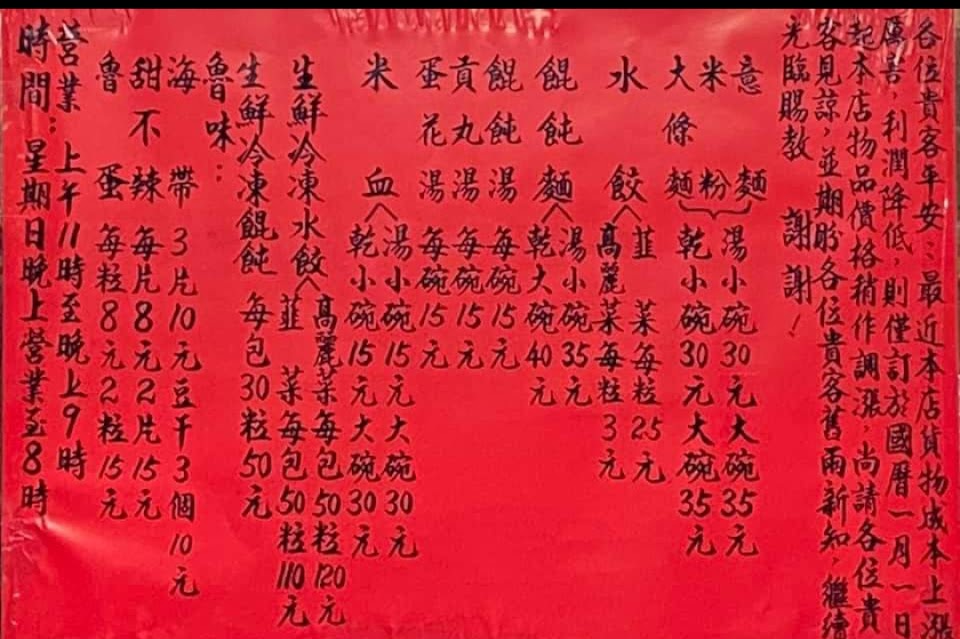 各位貴客平安:最近本店貨物成本上漲
厲害,利潤降低,則僅訂於國曆一月一日
起本店物品價格稍作調漲,尚請各位貴
客見諒,並期盼各位貴客舊雨新知,繼續
光臨賜教 謝謝!
意麵
米粉
大條麵
湯小碗30元大碗35元
乾小碗30元大碗35元
水餃
韮菜每粒25元
高麗菜每粒3元
餛飩麵
湯小碗35元
乾大碗40元
餛飩湯每碗15元
貢丸湯每碗15元
蛋花湯每碗15元
米血
湯小碗15元大碗30元
乾小碗15元大碗30元
生鮮冷凍水餃
高麗菜每包50粒120元
韮菜每包50粒110元
生鮮冷凍餛飩 每包30粒50元
魯味:
海帶3片10元豆干3個10元
甜不辣每片8元2片15元
魯蛋每粒8元2粒15元
營業上午11時至晚上9時
時間:星期日晚上營業至8時